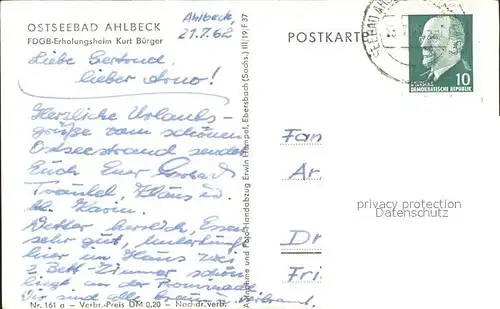 OSTSEEBAD AHLBECK
FDGB-Erholungsheim Kurt Bürger
Ahlbeck,
21.7.62
POSTKARTE
10
DEUTSCHE DEMOKRATISCHE REPUBLIK
Liebe Gertrud,
lieber Arno!
Herzliche Urlaubs-
grüße vom schönen
Ostseestrand senden
Euch Euer Gerhard
Traudel, Klaus u.
kl. Karin.
Wetter herrlich, Essen
sehr gut, Unterkunft
hier im Haus
2 Bett-Zimmer schön
liegt an der Promenade
Wir sind alle braun verbrannt.
Nr. 161 a – Verbr.-Preis DM 0,20 – Nachdr. verb.
Aufnahme und Foto-Handabzug Erwin Hempel, Ebersbach (Sachs.) III/19/F37
Fan
Ar
Dr
Fri
privacy protection
Datenschutz